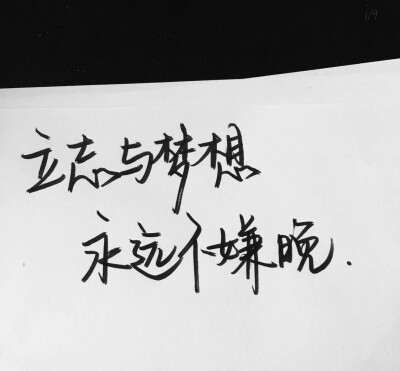 立志与梦想
永远不嫌晚.